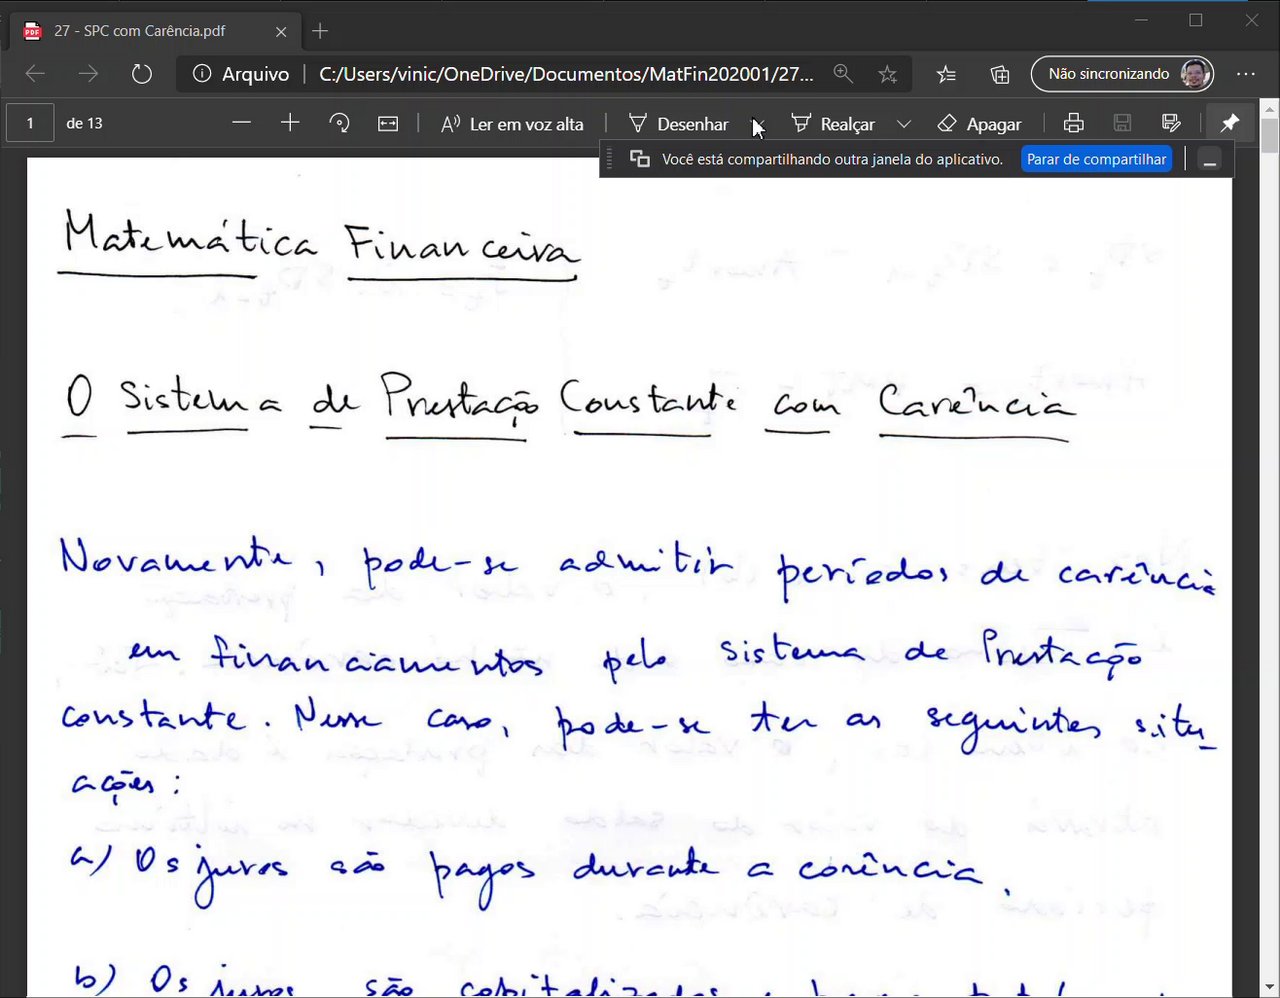 27 - SPC com Carência.pdf
Arquivo | C:/Users/vinic/OneDrive/Documentos/MatFin202001/27... Não sincronizando
1 de 13 Ler em voz alta Desenhar Realçar Apagar
Você está compartilhando outra janela do aplicativo. Parar de compartilhar
Matemática Financeira
O Sistema de Prestação Constante com Carência
Novamente, pode-se admitir períodos de carência
em financiamentos pelo Sistema de Prestação
constante. Nesse caso, pode-se ter as seguintes situ-
ações:
a) Os juros são pagos durante a carência.
b) Os juros são capitalizados